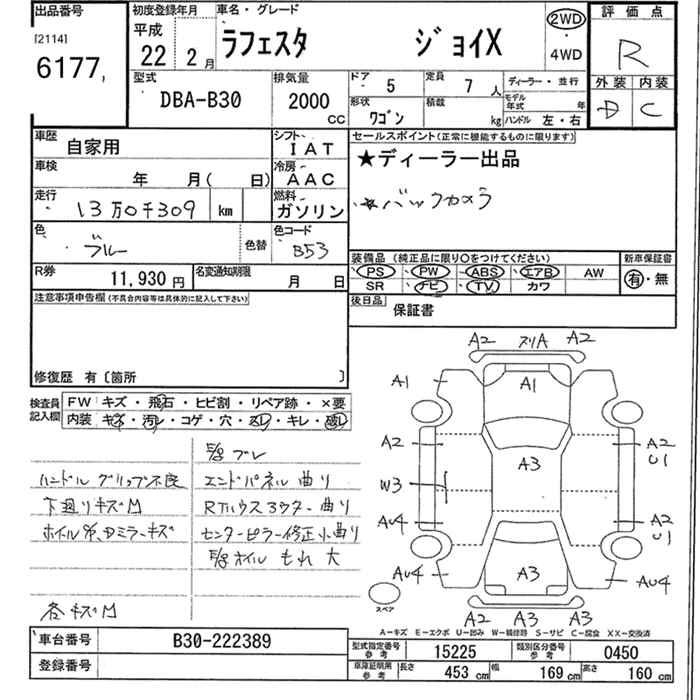 出品番号 初度登録年月 車名・グレード 2WD ・ 4WD 評価点
[2114] 6177, 平成 22 年 2 月 ラフェスタ ジョイX R
外装 内装
D C
型式 DBA-B30 排気量 2000 CC ドア 5 定員 7 人 ディーラー・並行
形状 ワゴン 積載 kg モデル年式 年 ハンドル 左・右
車歴 自家用 シフト IAT セールスポイント(正常に機能するものに限ります)
車検 年 月( 日) 冷房 AAC ★ディーラー出品
走行 13万0千309 km 燃料 ガソリン ★バックカメラ
色 ブルー 色替 色コード B53
装備品 (純正品に限り○をつけてください) 新車保証書
R券 11,930円 名変通知期限 月 日 PS PW ABS エアB AW 有・無
SR ナビ TV カワ
注意事項申告欄(不具合内容等は具体的に記入して下さい) 後日品 保証書
修復歴 有〔箇所 〕
検査員記入欄 FW キズ・飛石・ヒビ割・リペア跡・×要
内装 キズ・汚レ・コゲ・穴・スレ・キレ・破レ
A2 スリA A2
A1 A1
A2 A3 A2 U1
W3
AU4 A2 U1
AU4 A3 AU4
A2 A3 A3
スペア
ハンドルグリップ不良 エンドパネル曲り
下廻りキズM
センターピラー修正小曲り
オイルもれ大
各キズM
A-キズ E-エクボ U-凹み W-補修跡 S-サビ C-腐食 XX-交換済
車台番号 B30-222389 型式指定番号 参考 15225 類別区分番号 参考 0450
登録番号 車庫証明用 参考 長さ 453 cm 幅 169 cm 高さ 160 cm